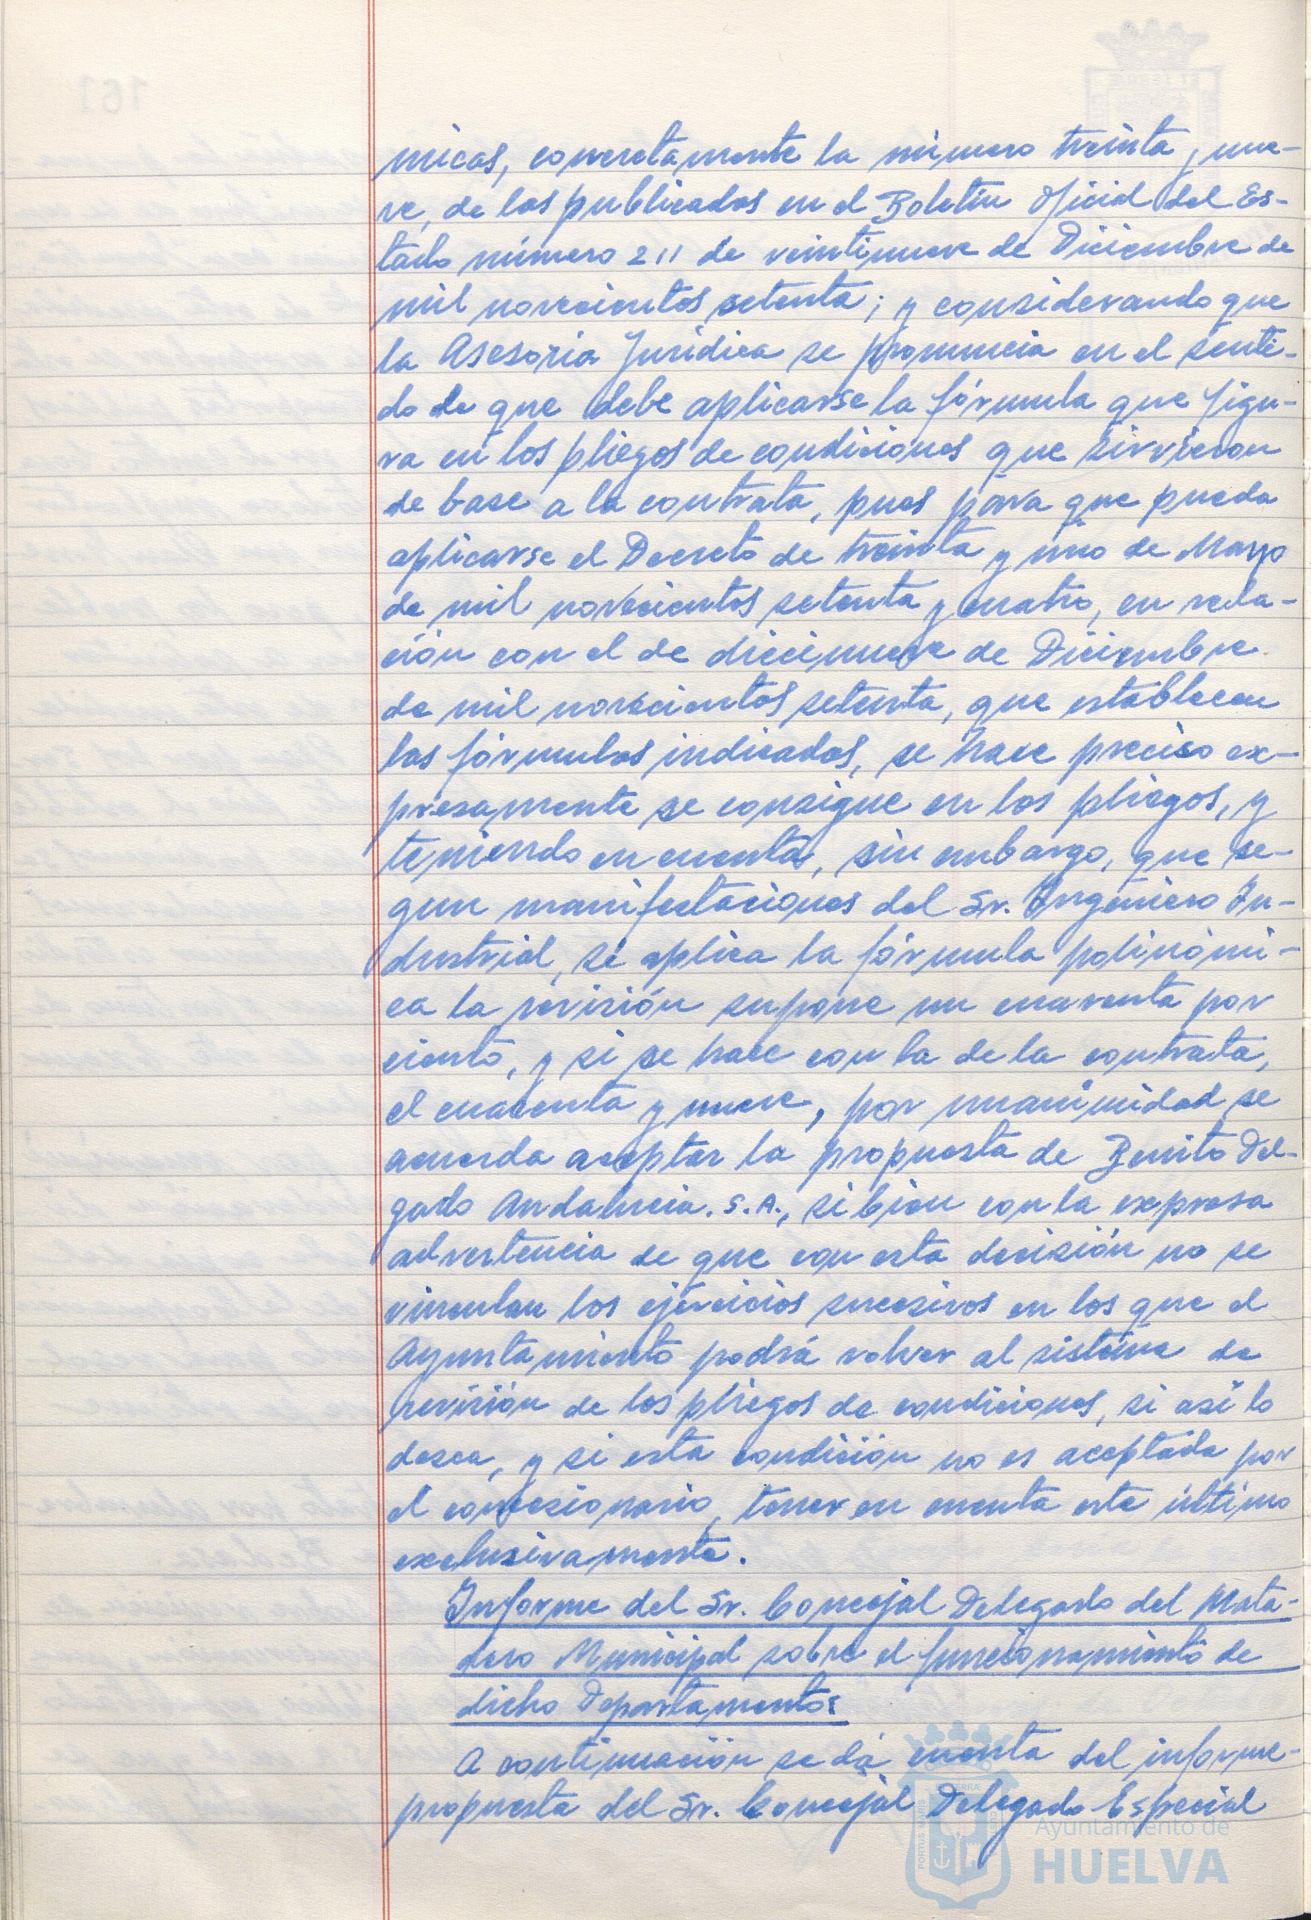 micas, concretamente la número treinta y nue-
ve, de las publicadas en el Boletín Oficial del Es-
tado número 211 de veintinueve de Diciembre de
mil novecientos setenta; y considerando que
la Asesoria Jurídica se pronuncia en el senti-
do de que debe aplicarse la fórmula que figu-
ra en los pliegos de condiciones que sirvieron
de base a la contrata, pues para que pueda
aplicarse el Decreto de treinta y uno de Mayo
de mil novecientos setenta y cuatro, en rela-
ción con el de diecinueve de Diciembre
de mil novecientos setenta, que establecen
las fórmulas indicadas, se hace preciso ex-
presamente se consigne en los pliegos, y
teniendo en cuenta, sin embargo, que se-
gun manifestaciones del Sr. Ingeniero In-
dustrial, si aplica la fórmula polinómi-
ca la revisión supone un cuarenta por
ciento, y si se hace con la de la contrata,
el cuarenta y nueve, por unanimidad se
acuerda aceptar la propuesta de Benito Del-
gado Andalucia. S.A., si bien con la expresa
advertencia de que con esta decisión no se
vinculan los ejercicios sucesivos en los que el
Ayuntamiento podrá volver al sistema de
revisión de los pliegos de condiciones, si así lo
desea, y si esta condición no es aceptada por
el concesionario, tener en cuenta este último
exclusivamente.
Informe del Sr. Concejal Delegado del Mata-
dero Municipal sobre el funcionamiento de
dicho Departamentos
A continuación se dá cuenta del informe-
propuesta del Sr. Concejal Delegado Especial
Ayuntamiento de
HUELVA